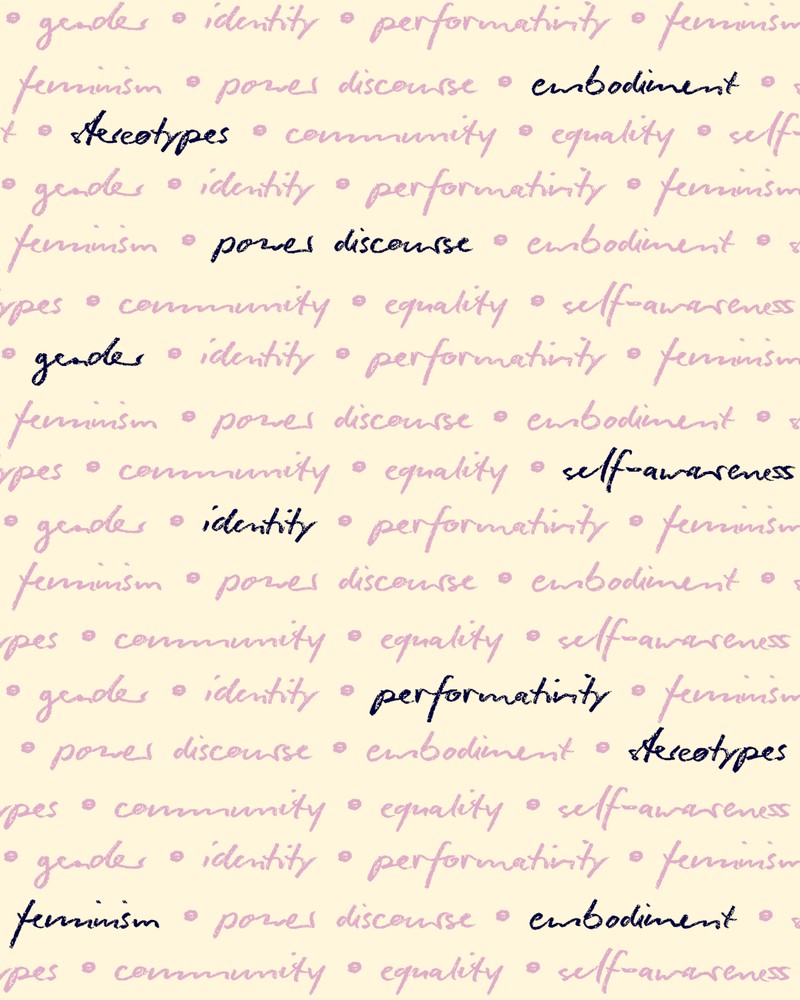 • gender • identity • performativity • feminism
feminism • power discourse • embodiment •
• stereotypes • community • equality • self-
• gender • identity • performativity • feminism
feminism • power discourse • embodiment •
ypes • community • equality • self-awareness
• gender • identity • performativity • feminism
feminism • power discourse • embodiment •
ypes • community • equality • self-awareness
• gender • identity • performativity • feminism
feminism • power discourse • embodiment •
ypes • community • equality • self-awareness
• gender • identity • performativity • feminism
• power discourse • embodiment • stereotypes
ypes • community • equality • self-awareness
• gender • identity • performativity • feminism
feminism • power discourse • embodiment •
ypes • community • equality • self-awareness